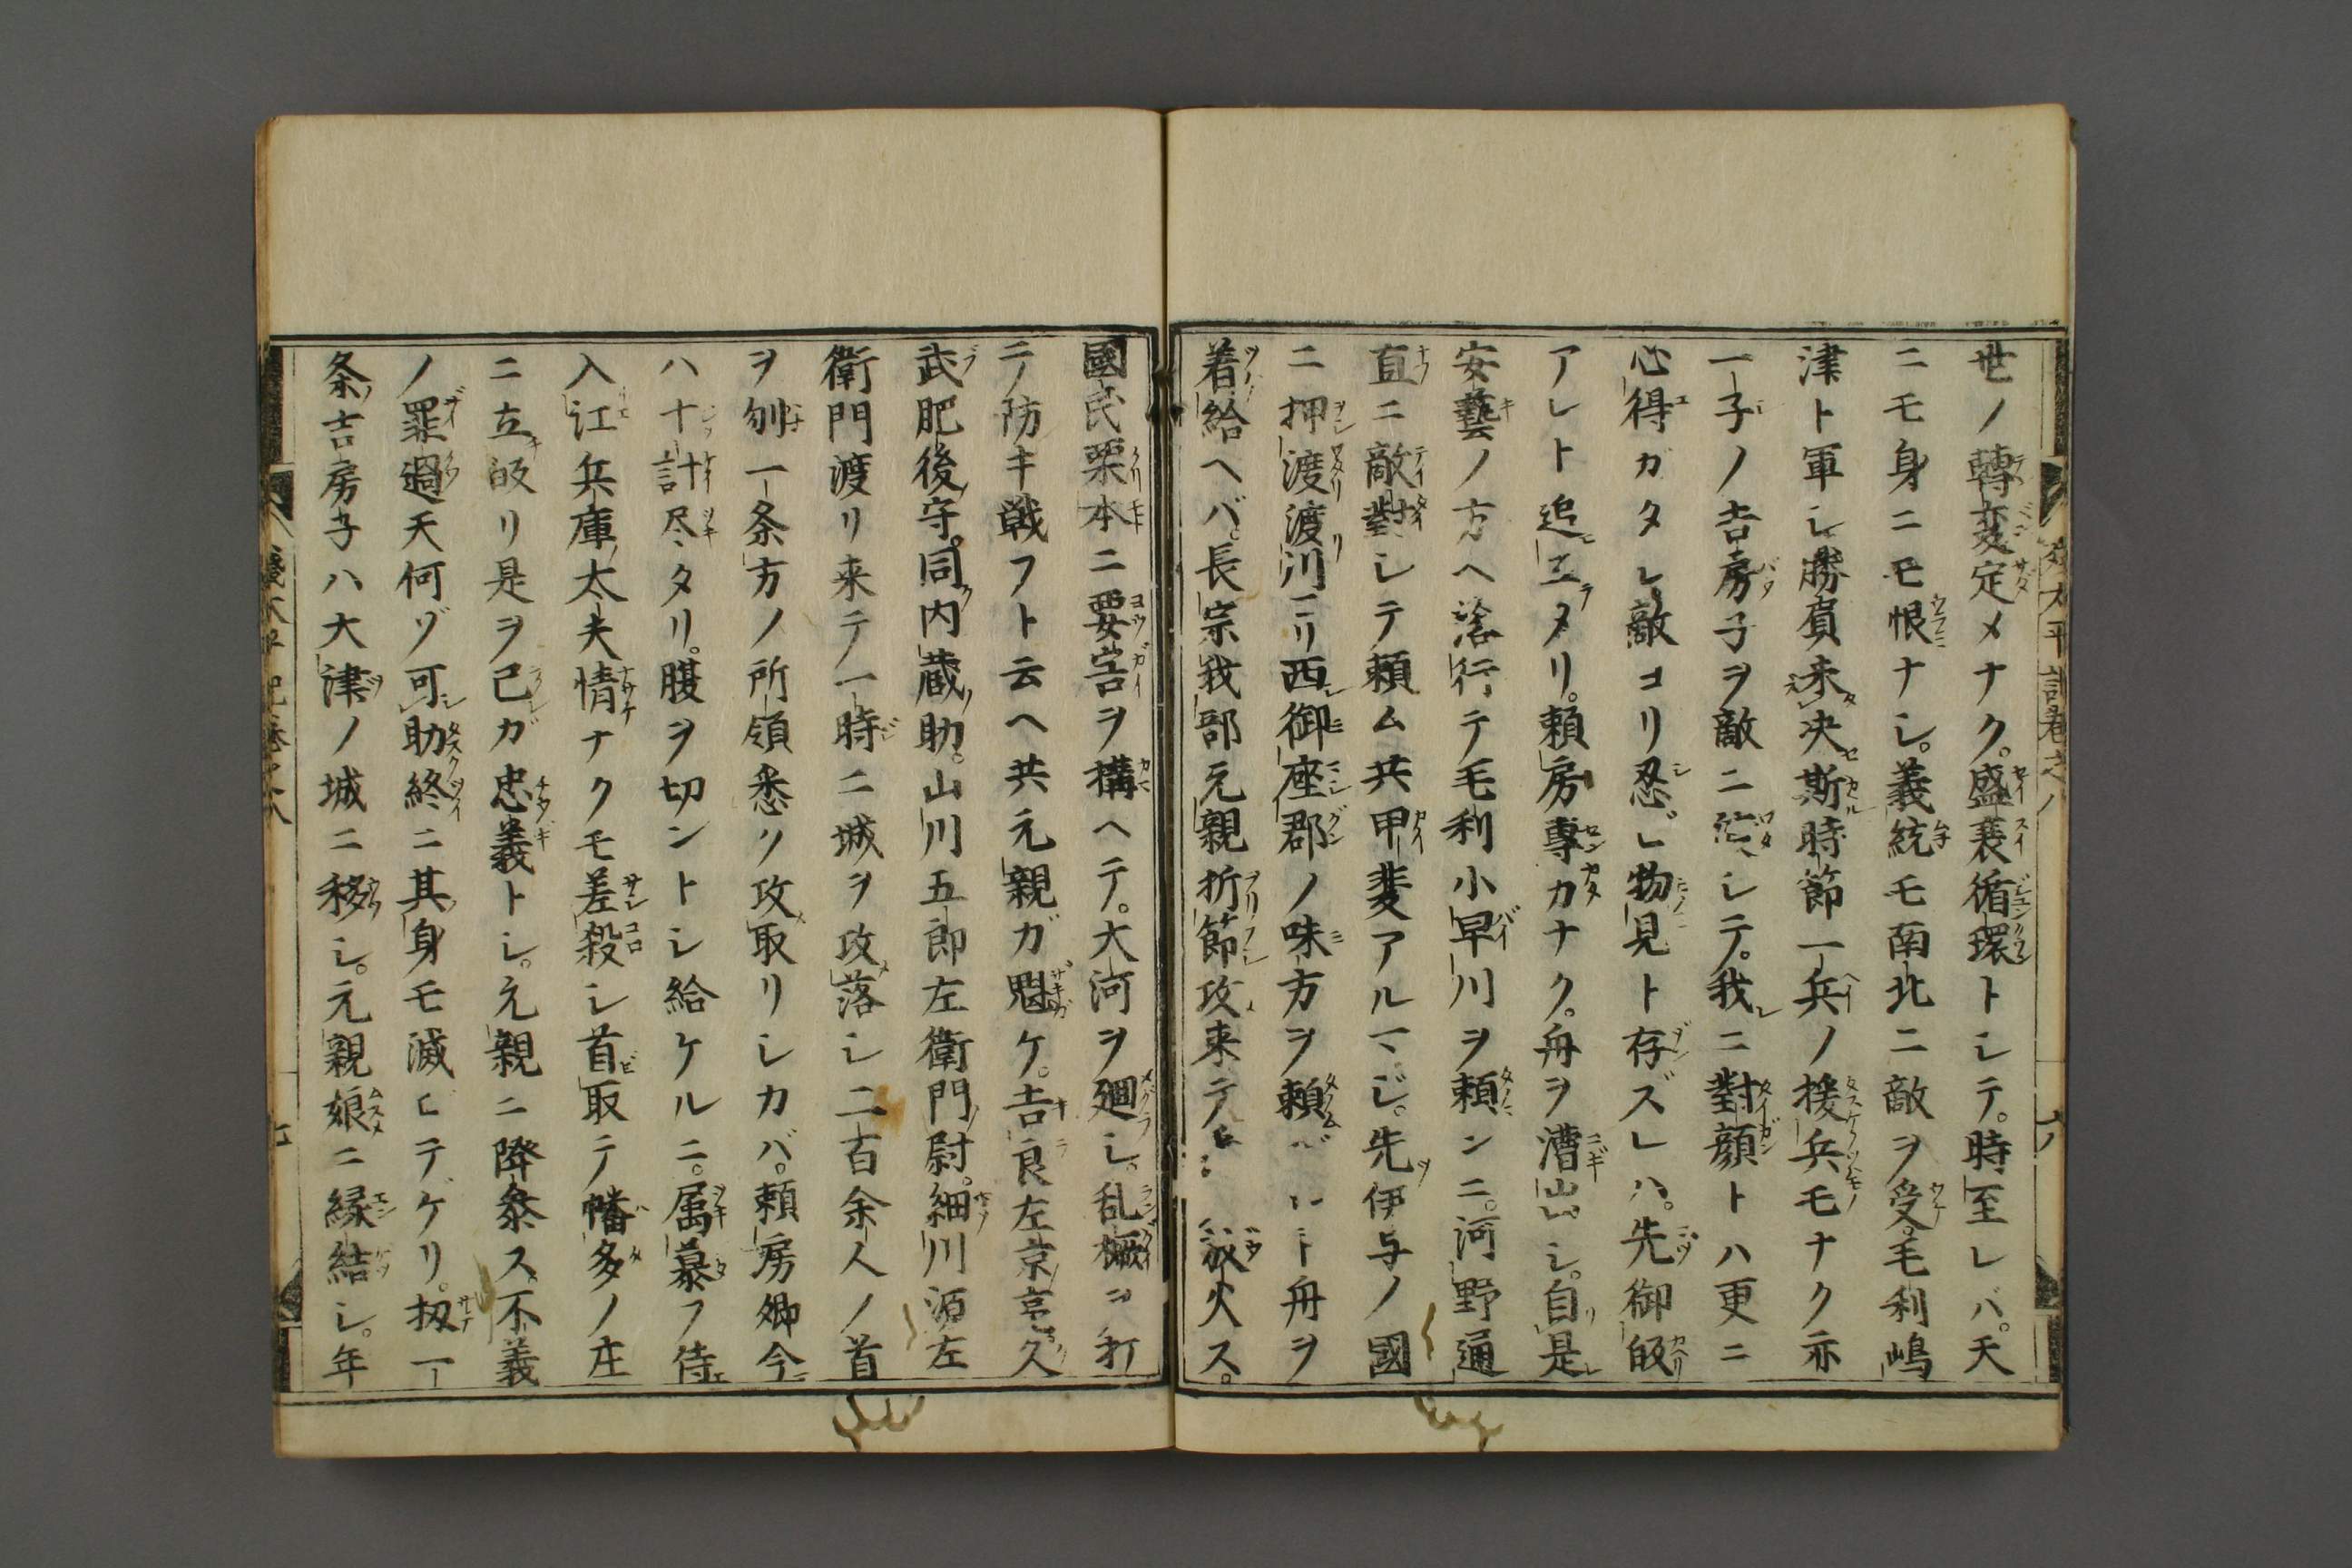 世ノ轉変定メナク。盛衰循環トシテ。時至レバ。天
ニモ身ニモ恨ナシ。義統モ南北ニ敵ヲ受。毛利嶋
津ト軍シ勝負未决斯時節一兵ノ援兵モナク亦
一子ノ吉房子ヲ敵ニ シテ。我ニ對顔トハ更ニ
心得ガタシ敵コリ忍ビ物見ト存ズレハ。先御皈
アレト追立タリ。頼房專カナク。舟ヲ漕出シ。自是
安藝ノ方ヘ落行テ毛利小早川ヲ頼ンニ。河野通
直ニ敵對シテ頼ム共甲斐アルマジ。先伊与ノ國
ニ押渡渡川ニリ西御座郡ノ味方ヲ頼 ト舟ヲ
着給ヘバ。長宗我部元親折節攻来テ 放火ス。
國民栗本ニ要害ヲ構ヘテ。大河ヲ廻シ。乱橛ヲ打
テ防キ戦フト云ヘ共元親ガ魁ケ。吉良左京亮久
武肥後守。同内蔵助。山川五郎左衛門尉。細川源左
衛門渡リ来テ一時ニ城ヲ攻落シ二百余人ノ首
ヲ刎一条方ノ所領悉ク攻取リシカバ。頼房卿今
ハ十計尽タリ。腹ヲ切ントシ給ケルニ。属慕フ侍
入江兵庫太夫情ナクモ差殺シ首取テ幡多ノ庄
ニ立皈リ是ヲ己ガ忠義トシ。元親ニ降参ス。不義
ノ罪過天何ゾ可助終ニ其身モ滅ビテゲリ。扨一
条吉房子ハ大津ノ城ニ移シ。元親娘ニ縁結シ。年